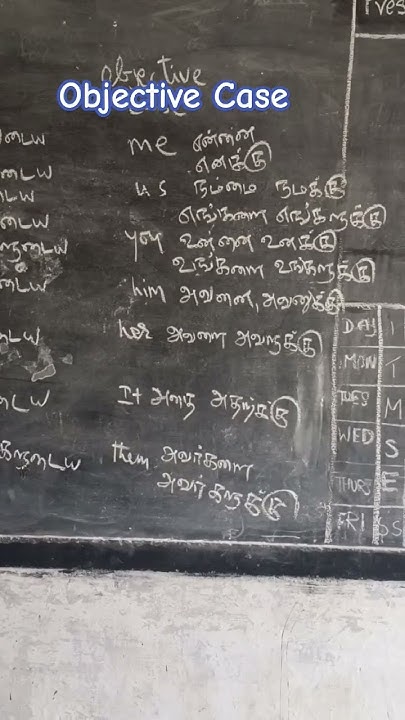 Pres
objective
Objective Case
டைய me என்னை
டைய எனக்கு
டைய us நம்மை நமக்கு
டைய எங்களை எங்களுக்கு
டைய you உன்னை உனக்கு
உங்களை உங்களுக்கு
டைய him அவனை, அவனுக்கு
டைய her அவளை அவளுக்கு
டைய It அதை அதற்கு
களுடைய them அவர்களை
அவர்களுக்கு
DAY I
MON T
TUES M
WED S
THURS E
FRI SS